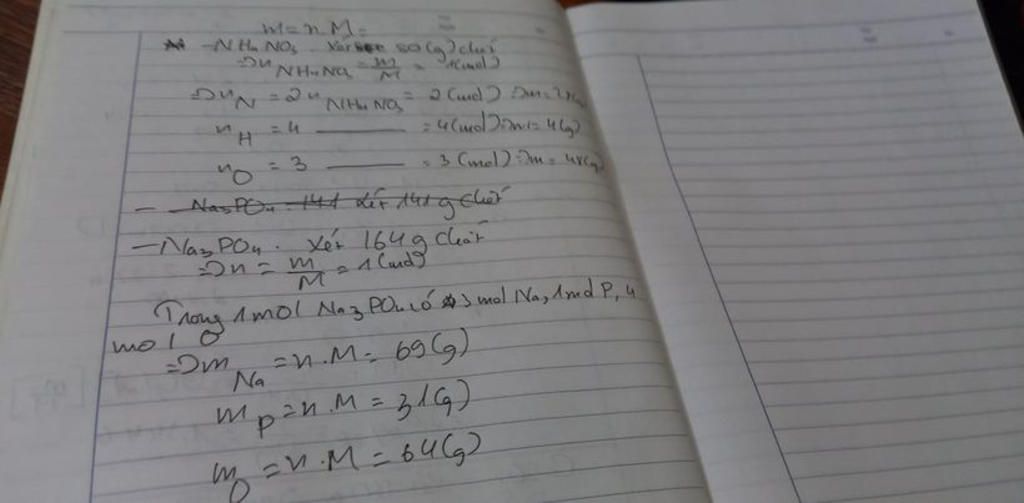 m = n M =
- NH4NO3 . Xét 80 (g) chất
=> n NH4NO3 = m/M = 1 (mol)
=> nN = 2 n NH4NO3 = 2 (mol) => m = 28 (g)
nH = 4 ——— = 4 (mol) => m = 4 (g)
nO = 3 ——— = 3 (mol) => m = 48 (g)
- Na3PO4 = 141 Xét 141 g chất
- Na3PO4 . Xét 164 g chất
=> n = m/M = 1 (mol)
Trong 1 mol Na3PO4 có 3 mol Na, 1 mol P, 4
mol O
=> m Na = n . M = 69 (g)
m P = n . M = 31 (g)
m O = n . M = 64 (g)